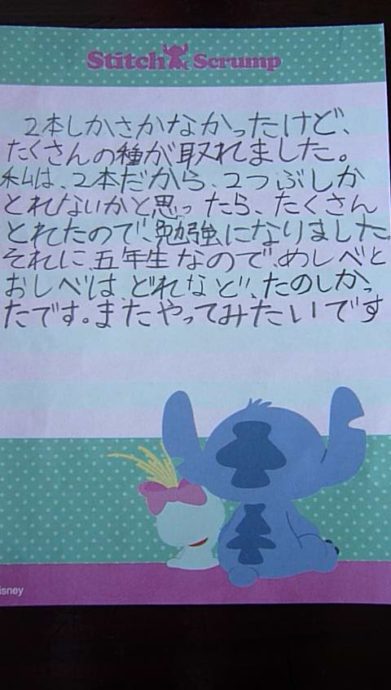 Stitch Scrump
2本しかさかなかったけど、
たくさんの種が取れました。
私は、2本だから、2つぶしか
とれないかと思ったら、たくさん
とれたので、勉強になりました
それに、五年生なので、めしべと
おしべは、どれなど、たのしかっ
たです。またやってみたいです
isney